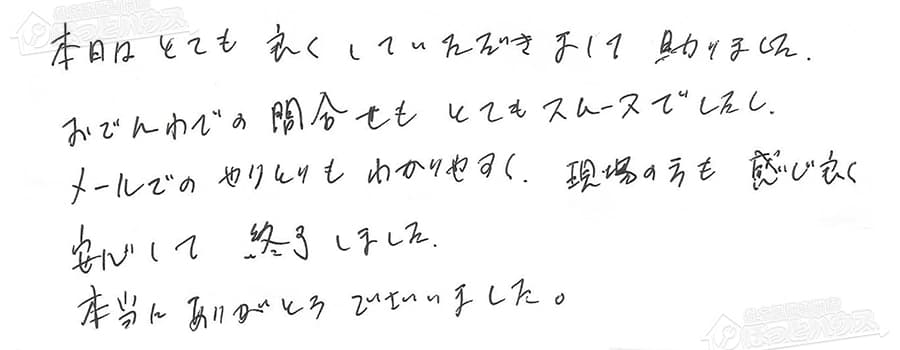 本日はとても良くしていただきまして助かりました.
おでんわでの問合せもとてもスムーズでしたし、
メールでのやりとりもわかりやすく、現場の方も感じ良く
安心して終了しました.
本当にありがとうございました。
生活救急車
ほっとハウス